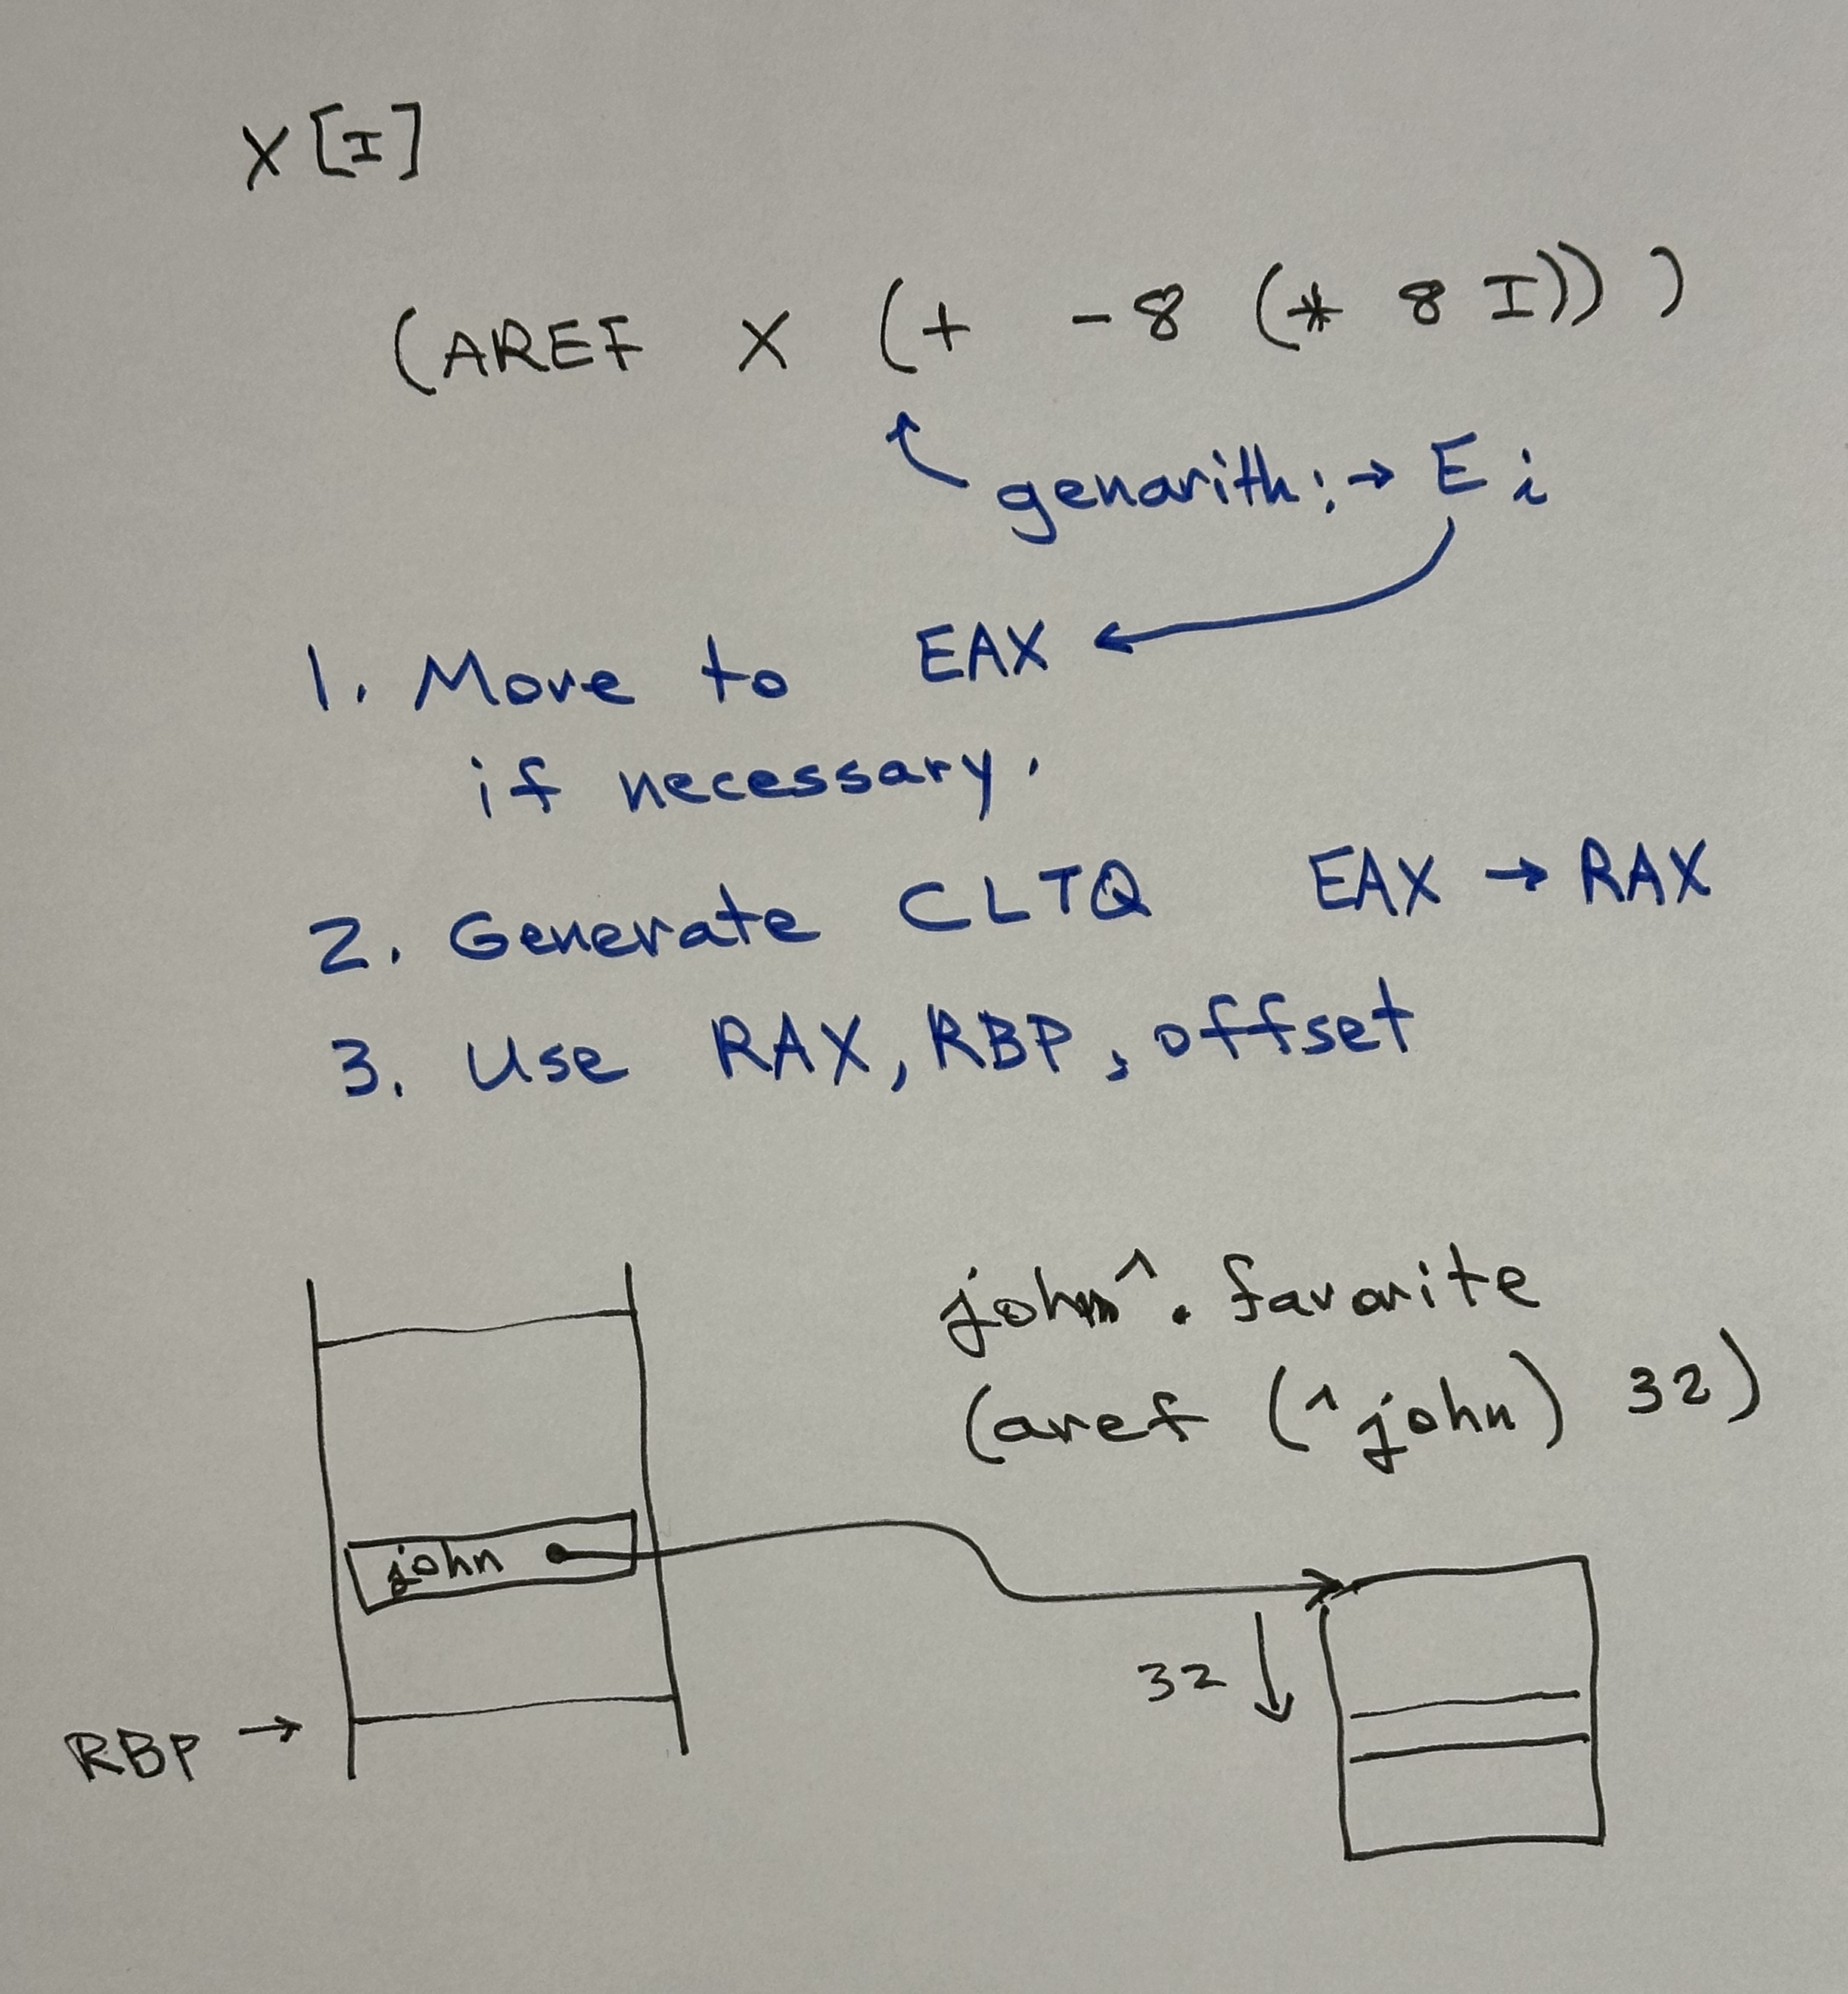 X[I]
(AREF X (+ -8 (* 8 I)))
genarith: → E i
1. Move to EAX
if necessary.
2. Generate CLTQ EAX → RAX
3. Use RAX, RBP, offset
john^. favorite
(aref (^john) 32)
john
32
RBP →